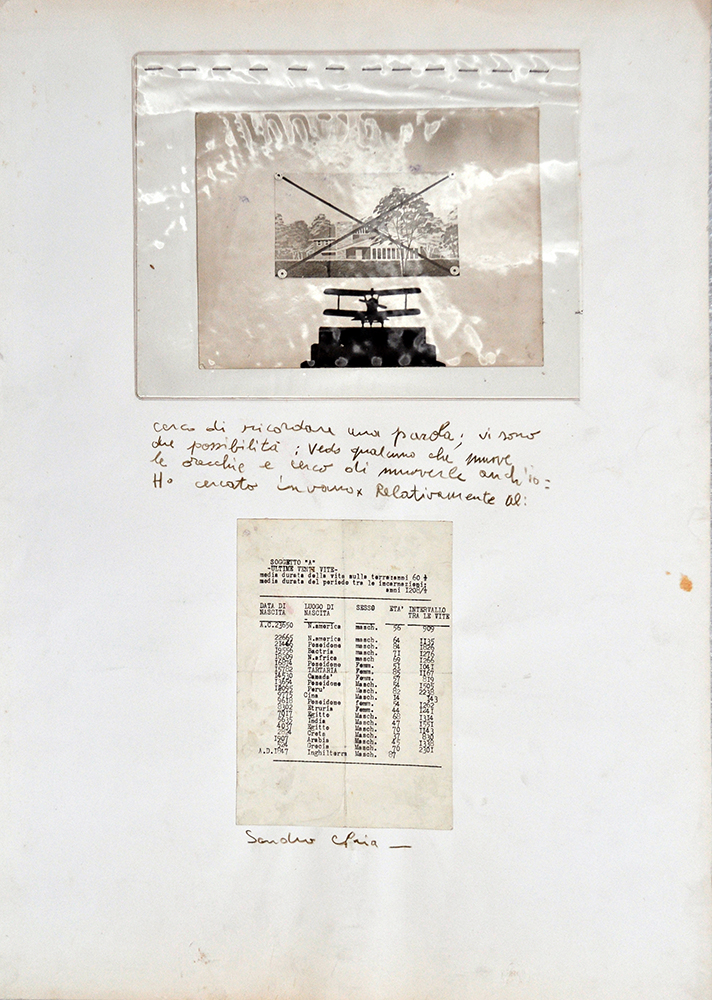 cerco di ricordare una parola; vi sono
due possibilità; Vedo qualcuno che muove
le orecchie e cerco di muoverle anch'io=
Ho cercato invano x Relativamente al:
SOGGETTO "A"
-ULTIME VENTI VITE-
media durata della vita sulla terra:anni 60
media durata del periodo tra le incarnazioni:
anni 1208/4
DATA DI NASCITA LUOGO DI NASCITA SESSO ETA' INTERVALLO TRA LE VITE
A.C.23650 N.america masch. 56 509
22665 N.america masch. 64 1135
Poseidone masch. 84 1826
19556 Bactria masch. 71 1276
18209 N.africa masch 69 1266
16874 Poseidone Femm. 57 1041
15782 TARTARIA Femm. 85 1167
14530 Canada' Femm. 57 819
13654 Poseidone Masch. 54 1505
12095 Peru' Masch. 82 2238
9775 Cina Masch. 14 143
9618 Poseidone femm. 54 1262
8302 Etruria Femm. 44 1241
7017 Egitto Masch. 68 1314
5635 India Masch. 47 1551
4037 Egitto Masch. 70 1143
Creta Masch. 37 830
1907 Arabia Masch. 45
Grecia Masch. 70 2301
A.D.1847 Inghilterra Masch. 87
Sandro Chia —